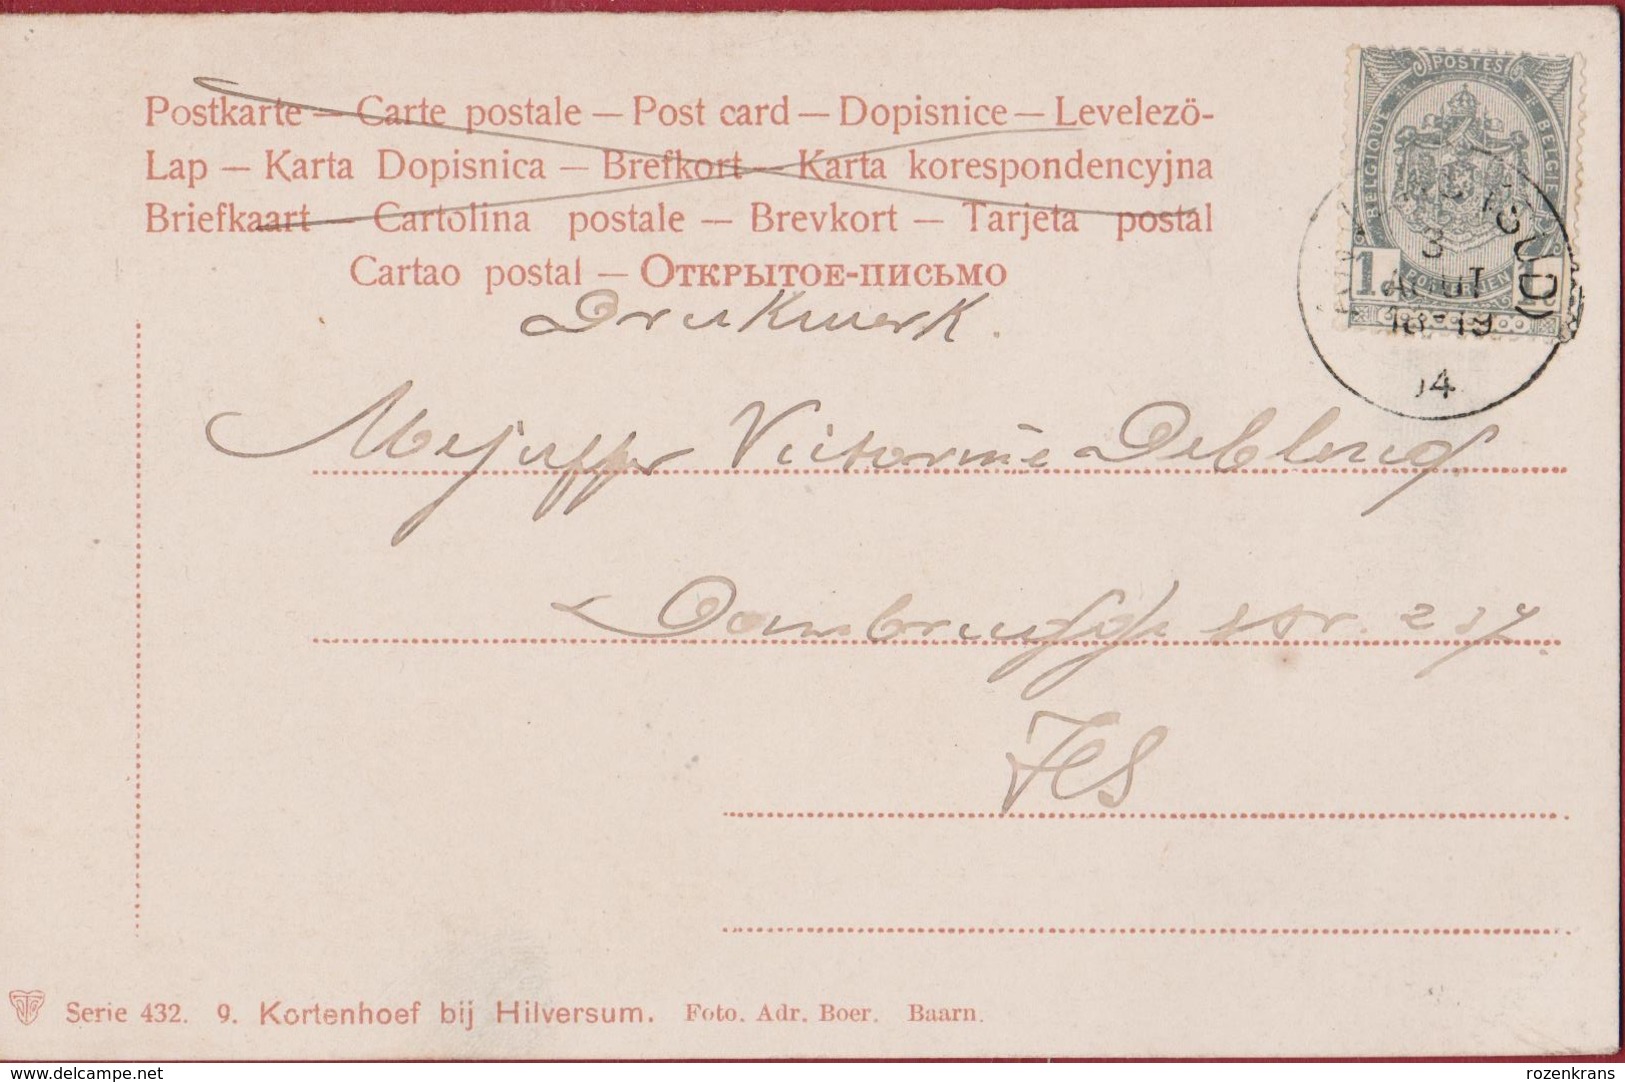 Postkarte — Carte postale — Post card — Dopisnice — Levelezö-
Lap — Karta Dopisnica — Brefkort — Karta korespondencyjna
Briefkaart — Cartolina postale — Brevkort — Tarjeta postal
Cartao postal — Открытое-письмо
POSTES
BELGIQUE
BELGIE
1
3
AOUT
18-19
14
Drukwerk.
Mejuffr Victorine
str.
Serie 432. 9. Kortenhoef bij Hilversum. Foto. Adr. Boer. Baarn.
www.delcampe.net
rozenkrans